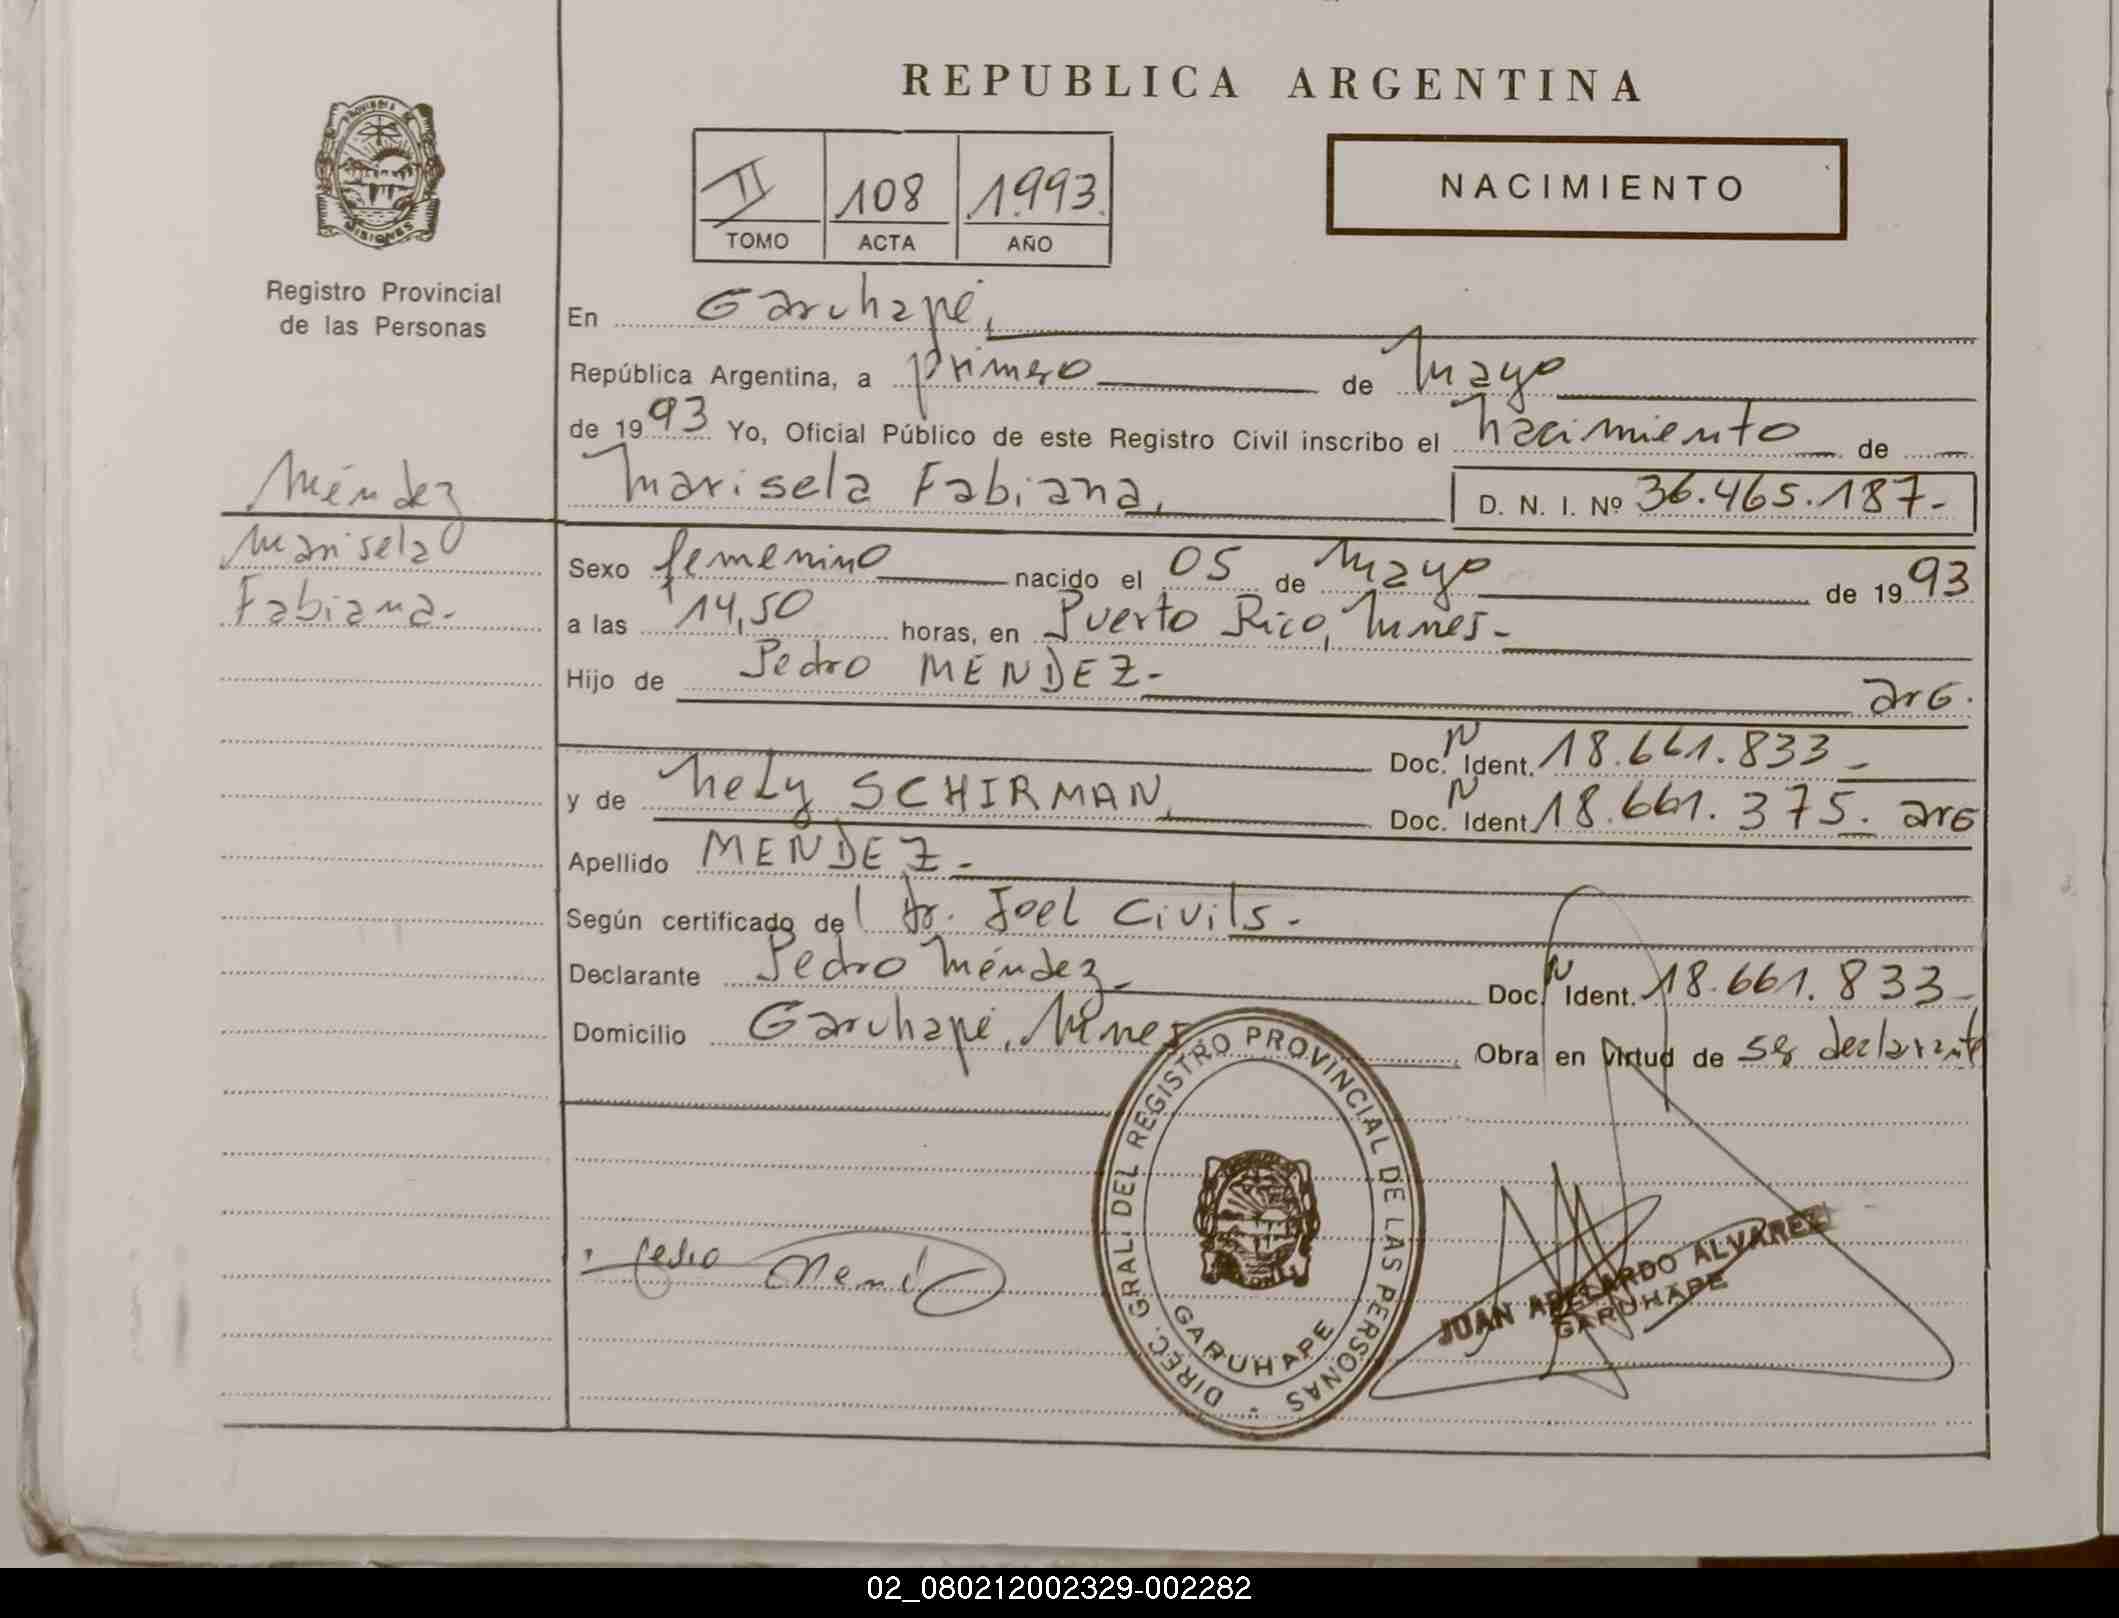 REPUBLICA ARGENTINA
NACIMIENTO
II 108 1993
TOMO ACTA AÑO
PROVINCIA DE
MISIONES
Registro Provincial
de las Personas
Méndez
Marisela
Fabiana.-
En Garuhapé,
República Argentina, a primero de Mayo
de 1993 Yo, Oficial Público de este Registro Civil inscribo el nacimiento de
Marisela Fabiana, D. N. I. Nº 36.465.187-
Sexo femenino nacido el 05 de Mayo de 1993
a las 14,50 horas, en Puerto Rico, Mnes-
Hijo de Pedro MÉNDEZ- arG.
Doc. N Ident. 18.661.833-
y de Nely SCHIRMAN, Doc. N Ident. 18.661.375. arG
Apellido MENDEZ-
Según certificado del Dr. Joel Civils.
Declarante Pedro Méndez- Doc. N Ident. 18.661.833-
Domicilio Garuhapé, Mnes Obra en virtud de ser declarante
Pedro Mend
DIREC. GRAL. DEL REGISTRO PROVINCIAL DE LAS PERSONAS
GARUHAPE
JUAN ABELARDO ALVAREZ
GARUHAPE
02_080212002329-002282